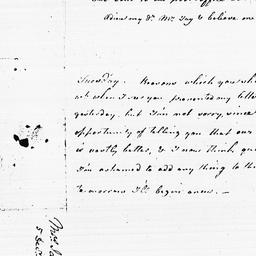 Adieu my Dr. Mrs. Jay & believe me
Tuesday. Reasons which you
when I saw you prevented my
yesterday, but I'm not sorry, since
opportunity of telling you that our
is vastly better, & I now think
I'm ashamed to add any thing to th
To-morrow I'll begin anew. —
Mrs. Ja